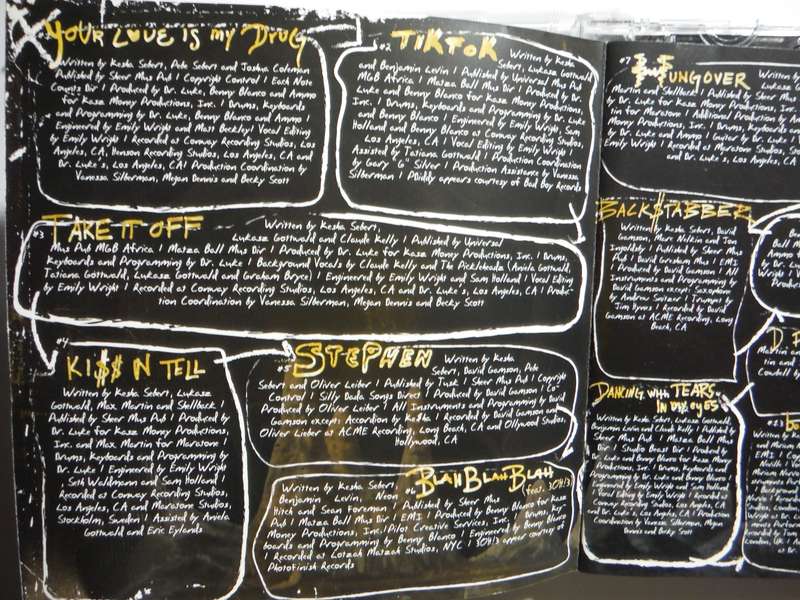 YOUR LOVE IS MY DRUG
Written by Kesha Sebert, Pebe Sebert and Joshua Coleman
Published by Sheer Mus Pub | Copyright Control | Each Note
Counts Dir | Produced by Dr. Luke, Benny Blanco and Ammo
for Kasz Money Productions, Inc. | Drums, Keyboards
and Programming by Dr. Luke, Benny Blanco and Ammo |
Engineered by Emily Wright and Mass Beckley | Vocal Editing
by Emily Wright | Recorded at Conway Recording Studios,
Los Angeles, CA, Henson Recording Studios, Los Angeles, CA and
Dr. Luke's, Los Angeles, CA | Production Coordination by
Vanessa Silberman, Megan Dennis and Becky Scott
#2 TiKToK
Written by Kesha
Sebert, Lukasz Gottwald
and Benjamin Levin | Published by Universal Mus Pub
MGB Africa | Matza Ball Mus Dir | Produced by Dr.
Luke and Benny Blanco for Kasz Money Productions,
Inc. | Drums, Keyboards and Programming by Dr. Luke
and Benny Blanco | Engineered by Emily Wright, Sam
Holland and Benny Blanco at Conway Recording Studios,
Los Angeles, CA | Vocal Editing by Emily Wright |
Assisted by Tatiana Gottwald | Production Coordination
by Gary "G" Silver | Production Assistance by Vanessa
Silberman | PDiddy appears courtesy of Bad Boy Records
#3 TAKE IT OFF
Written by Kesha Sebert,
Lukasz Gottwald and Claude Kelly | Published by Universal
Mus Pub MGB Africa | Matza Ball Mus Dir | Produced by Dr. Luke for Kasz Money Productions, Inc. | Drums,
Keyboards and Programming by Dr. Luke | Background Vocals by Claude Kelly and The Pickleheadz (Aniela Gottwald,
Tatiana Gottwald, Lukasz Gottwald and Graham Bryce) | Engineered by Emily Wright and Sam Holland | Vocal Editing
by Emily Wright | Recorded at Conway Recording Studios, Los Angeles, CA and Dr. Luke's, Los Angeles, CA | Produc-
tion Coordination by Vanessa Silberman, Megan Dennis and Becky Scott
#4
KI$$ N TELL
Written by Kesha Sebert, Lukasz
Gottwald, Max Martin and Shellback |
Published by Sheer Mus Pub | Produced by
Dr. Luke for Kasz Money Productions,
Inc. and Max Martin for Maratone |
Drums, Keyboards and Programming by
Dr. Luke | Engineered by Emily Wright
Seth Waldmann and Sam Holland |
Recorded at Conway Recording Studios,
Los Angeles, CA and Maratone Studios,
Stockholm, Sweden | Assisted by Aniela
Gottwald and Eric Eylands
#5 STEPHEN
Written by Kesha
Sebert, David Gamson, Pebe
Sebert and Oliver Leiber | Published by Tusk | Sheer Mus Pub | Copyright
Control | Silly Dada Songs Direct | Produced by David Gamson | Co-
Produced by Oliver Leiber | All Instruments and Programming by David
Gamson except: Accordion by Ke$ha | Recorded by David Gamson and
Oliver Lieber at ACME Recording, Long Beach, CA and Ollywood Studios,
Hollywood, CA
#6 BLAH BLAH BLAH
feat. 3OH!3
Written by Kesha Sebert,
Benjamin Levin, Neon
Hitch and Sean Foreman | Published by Sheer Mus
Pub | Matza Ball Mus Dir | EMI | Produced by Benny Blanco for Kasz
Money Productions, Inc/Pilot Creative Services, Inc. | Drums, Key-
boards and Programming by Benny Blanco | Engineered by Benny Blanco
| Recorded at Lotzah Matzah Studios, NYC | 3OH!3 appear courtesy of
Photofinish Records
#7
UNGOVER
Written by
Martin and Shellback | Published by Sheer
by Dr. Luke for Kasz Money Productions, Inc
in for Maratone | Additional Production by
and Benny Blanco | Drums, Keyboards
Dr. Luke and Ammo | Guitar by Dr. Luke
Emily Wright | Recorded at Maratone Studios
and Dr. Luke's, Los Angeles, CA
BACK$TABBER
Written by Kesha Sebert, David
Gamson, Marc Nelkin and Jon
Ingoldsby | Published by Sheer Mus
Pub | David Gresham Mus |
Produced by David Gamson | All
Instruments and Programming by
David Gamson except: Saxophone
by Andrew Snitzer | Trumpet by
Jim Hynes | Recorded by David
Gamson at ACME Recording, Long
Beach, CA
DANCING WITH TEARS
IN MY EYES
Written by Kesha Sebert, Lukasz Gottwald,
Benjamin Levin and Claude Kelly | Published by
Sheer Mus Pub | Matza Ball Mus
Dir | Studio Beast Dir | Produced by
Dr. Luke and Benny Blanco for Kasz Money
Productions, Inc. | Drums, Keyboards and
Programming by Dr. Luke and Benny Blanco
| Engineered by Emily Wright and Sam Holland
| Vocal Editing by Emily Wright | Recorded
at Conway Recording Studios, Los Angeles, CA
and Dr. Luke's, Los Angeles, CA | Production
Coordination by Vanessa Silberman, Megan
Dennis and Becky Scott